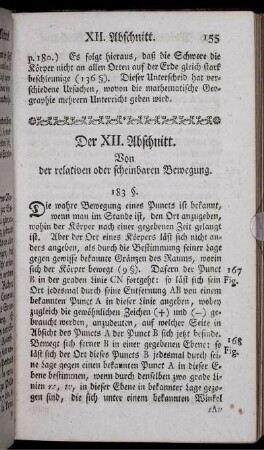 XII. Abschnitt. 155
p. 180.) Es folgt hieraus, daß die Schwere die
Körper nicht an allen Orten auf der Erde gleich stark
beschleunige (136 §). Dieser Unterscheid hat ver-
schiedene Ursachen, wovon die mathematische Geo-
graphie mehrern Unterricht geben wird.
Der XII. Abschnitt.
Von
der relativen oder scheinbaren Bewegung.
183 §.
Die wahre Bewegung eines Puncts ist bekannt,
wenn man im Stande ist, den Ort anzugeben,
wohin der Körper nach einer gegebenen Zeit gelangt
ist. Aber der Ort eines Körpers läßt sich nicht an-
ders angeben, als durch die Bestimmung seiner Lage
gegen gewisse bekannte Gränzen des Raums, worin
sich der Körper bewegt (9 §). Dafern der Punct 167
B in der graden linie CN fortgeht: so läßt sich sein Fig.
Ort jedesmal durch seine Entfernung AB von einem
bekannten Punct A in dieser Linie angeben, wobey
zugleich die gewöhnlichen Zeichen (+) und (−) ge-
braucht werden, anzudeuten, auf welcher Seite in
Absicht des Puncts A der Punct B sich jetzt befinde.
Bewegt sich ferner B in einer gegebenen Ebene: so 168
läßt sich der Ort dieses Puncts B jedesmal durch sei- Fig.
ne Lage gegen einen bekannten Punct A in dieser E-
bene bestimmen, wenn durch denselben zwo grade Li-
nien in dieser Ebene in bekannter Lage gezo-
gen sind, die sich unter einem bekannten Winkel